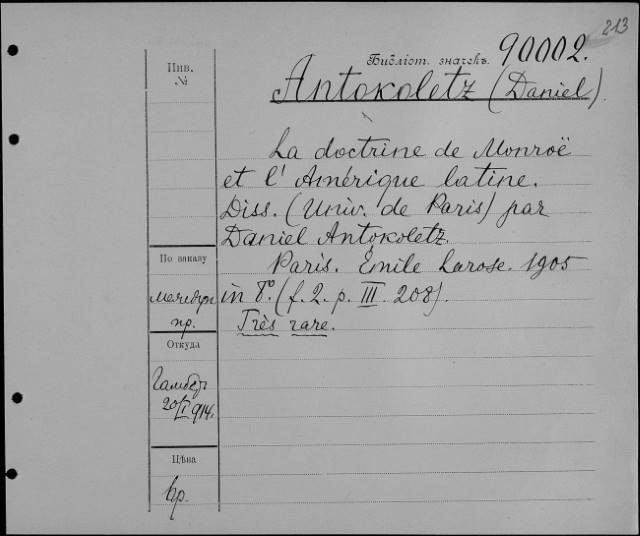 213
Библіот. значекъ. 90002.
Инв.
№
Antokoletz (Daniel).
La doctrine de Monroë
et l' Amérique latine.
Diss. (Univ. de Paris) par
Daniel Antokoletz.
По заказу
Paris. Émile Larose. 1905
in 8°. (f. 2. p. III. 208).
пр.
Très rare.
Откуда
20/I 914.
Цѣна